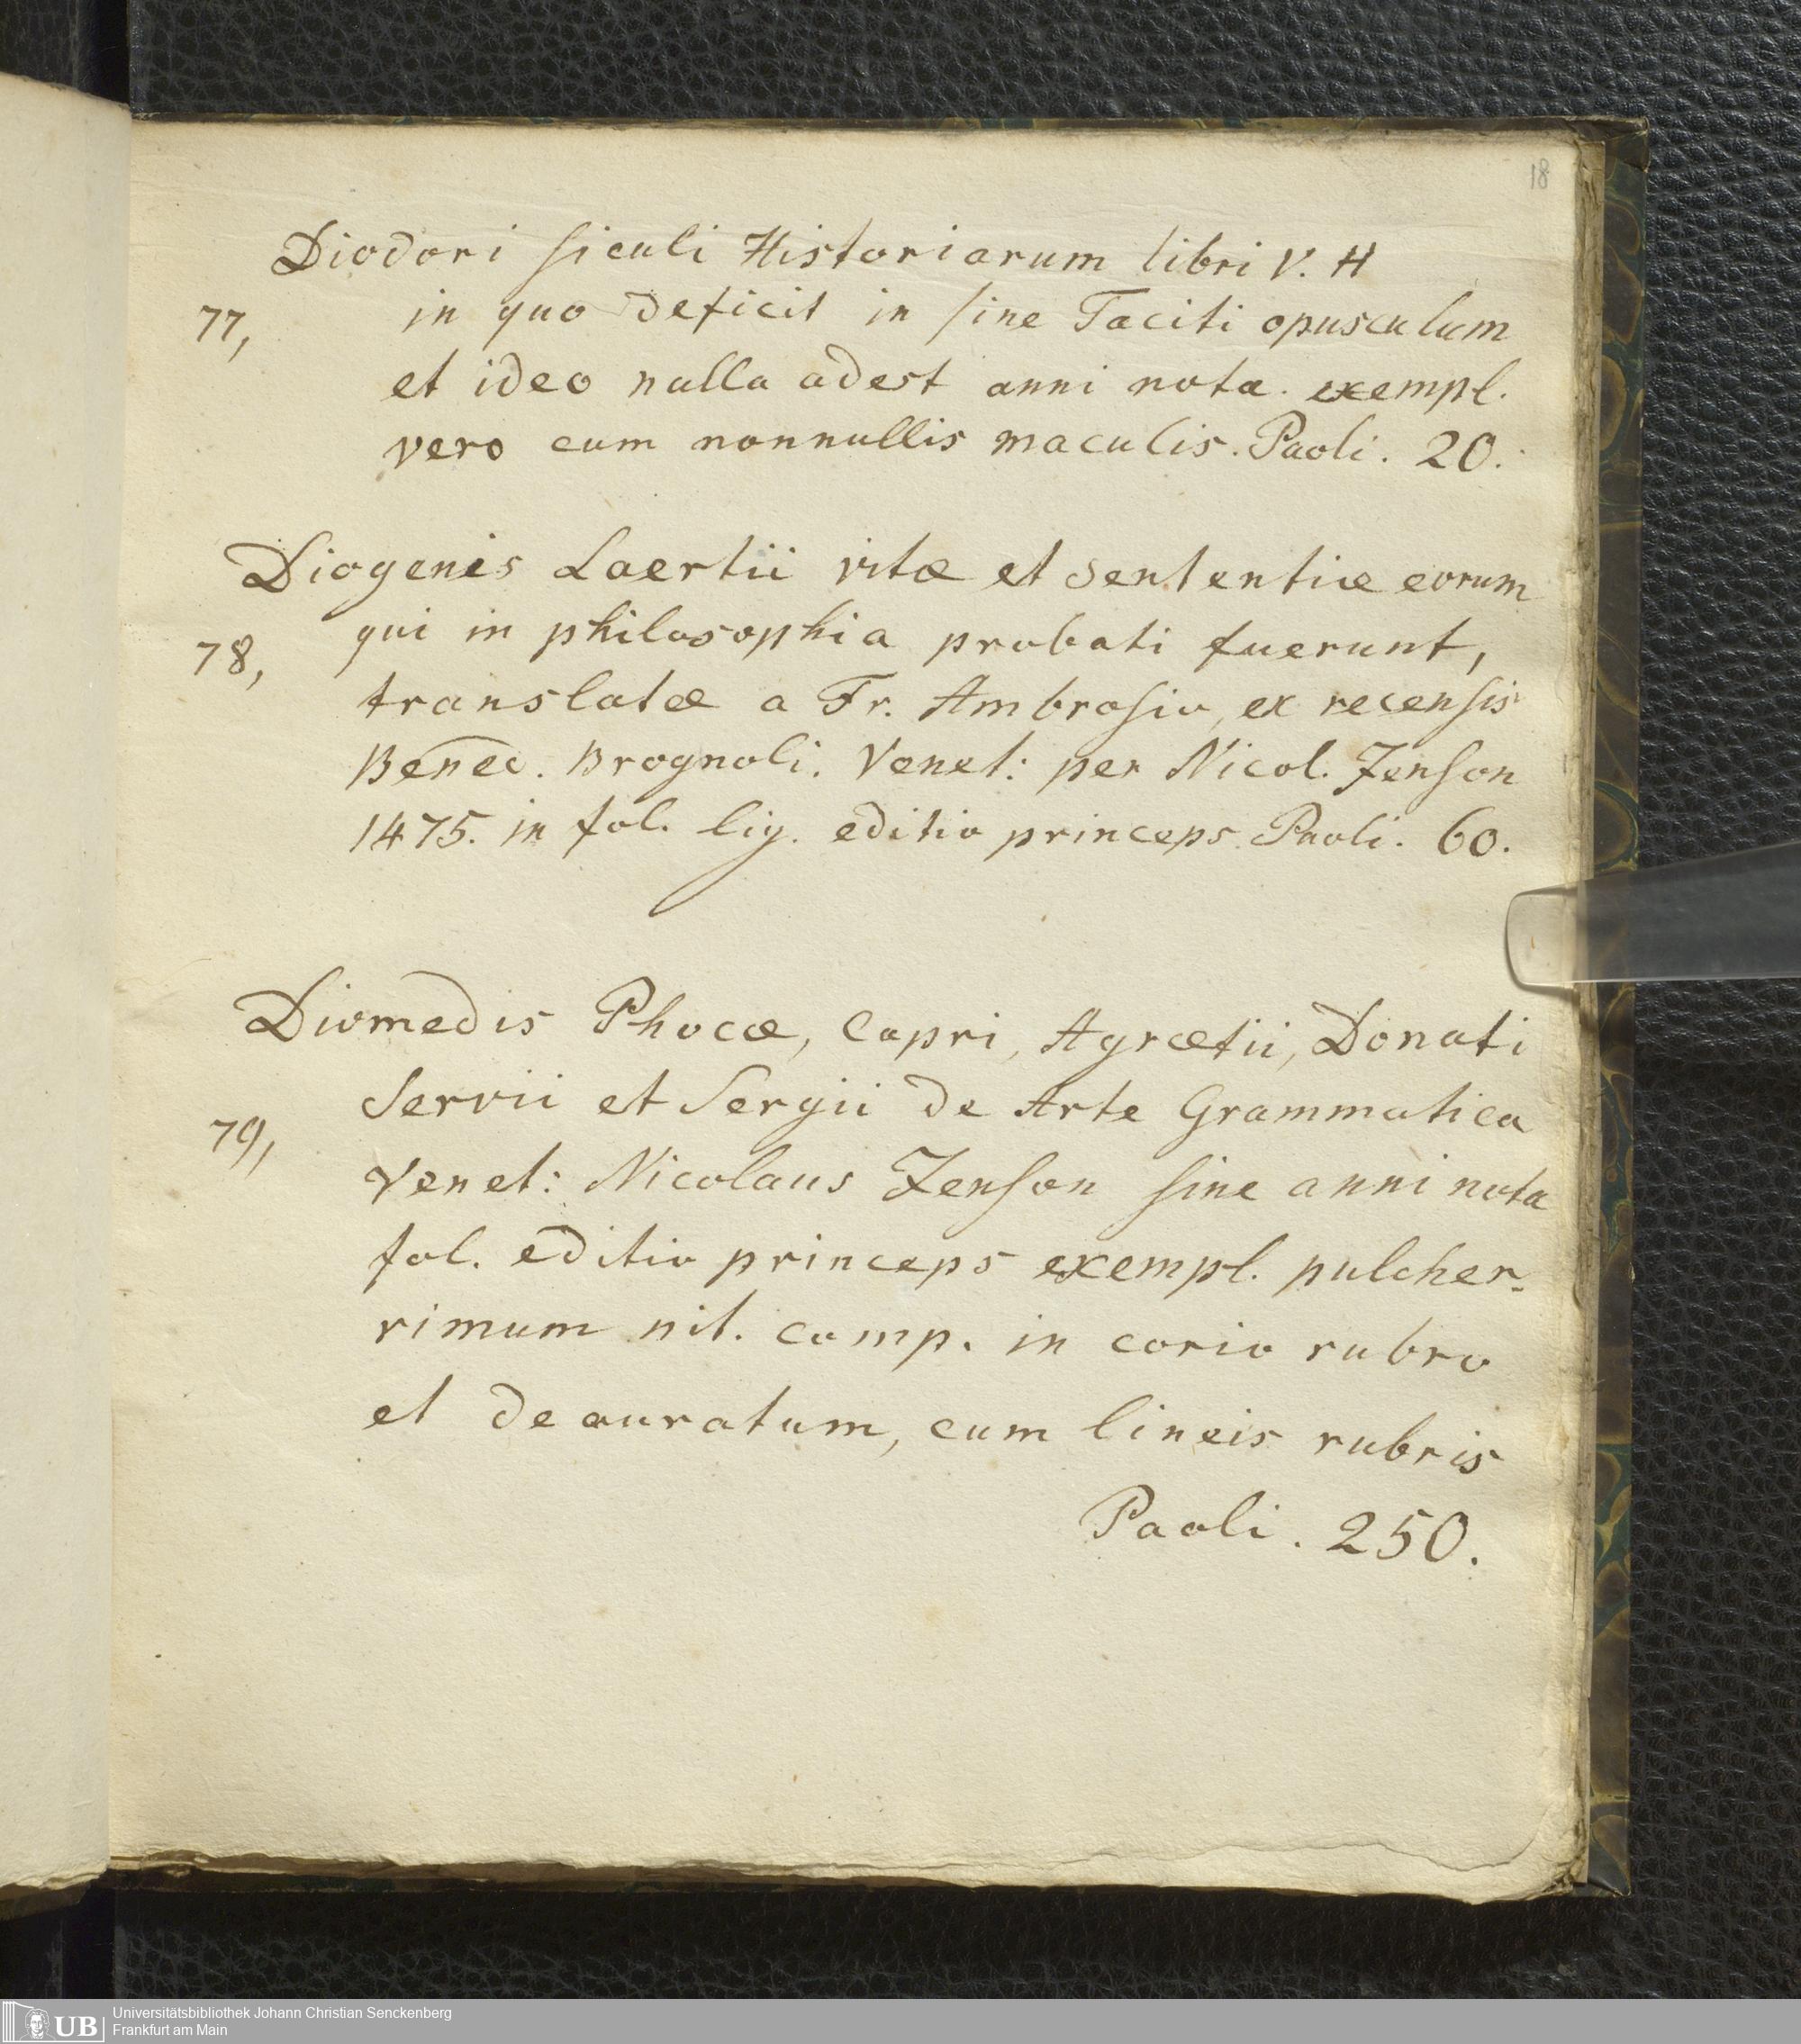 18
Diodori siculi Historiarum libri V. H
77, in quo deficit in fine Taciti opusculum
et ideo nulla adest anni nota. exempl.
vero cum nonnullis maculis. Paoli. 20.
Diogenis Laertii vitæ et sententiæ eorum
78, qui in philosophia probati fuerunt,
translatæ a Fr. Ambrosio, ex recensis
Bened. Brognoli. Venet: per Nicol. Jenson
1475. in fol. lig. editio princeps. Paoli. 60.
Diomedis Phocæ, Capri, Agrætii, Donati
79, Servii et Sergii de Arte Grammatica
Venet: Nicolaus Jenson sine anni nota
fol. editio princeps exempl. pulcher-
rimum nit. comp. in corio rubro
et deauratum, cum lineis rubris
Paoli. 250.
UB Universitätsbibliothek Johann Christian Senckenberg
Frankfurt am Main